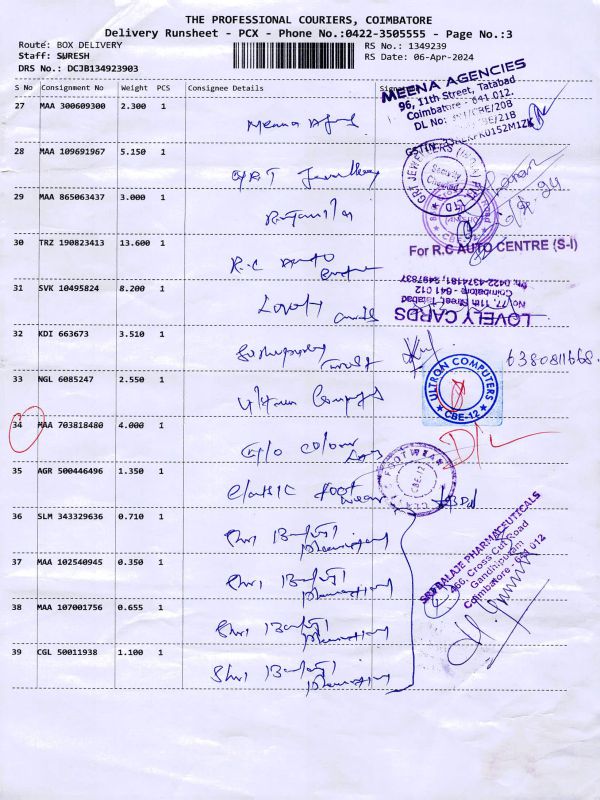 THE PROFESSIONAL COURIERS, COIMBATORE
Delivery Runsheet - PCX - Phone No.:0422-3505555 - Page No.:3
Route: BOX DELIVERY
RS No.: 1349239
Staff: SURESH
RS Date: 06-Apr-2024
DRS No.: DCJB134923903
S No Consignment No Weight PCS Consignee Details
27 MAA 300609300 2.300 1
Meena
MEENA AGENCIES
96, 11th Street, Tatabad
Coimbatore - 641 012.
28 MAA 109691967 5.150 1
GRT Jewellery
Security Checked
29 MAA 865063437 3.000 1
30 TRZ 190823413 13.600 1
R.C Auto
For R.C AUTO CENTRE (S-I)
31 SVK 10495824 8.200 1
Lovely Cards
LOVELY CARDS
No. 77, 11th Street, Tatabad
Coimbatore - 641 012
Ph: 0422-4374181, 2497837
32 KDI 663673 3.510 1
Trust
6380811668
33 NGL 6085247 2.550 1
ULTRON COMPUTERS
CBE-12
34 MAA 703818480 4.000 1
Colour
35 AGR 500446496 1.350 1
Classic foot wear
FOOT WEAR
CBE-12
36 SLM 343329636 0.710 1
Shri
37 MAA 102540945 0.350 1
Shri
38 MAA 107001756 0.655 1
Shri
39 CGL 50011938 1.100 1
Shri
SRI BALAJE PHARMACEUTICALS
466, Cross Cut Road
Gandhipuram
Coimbatore - 641 012